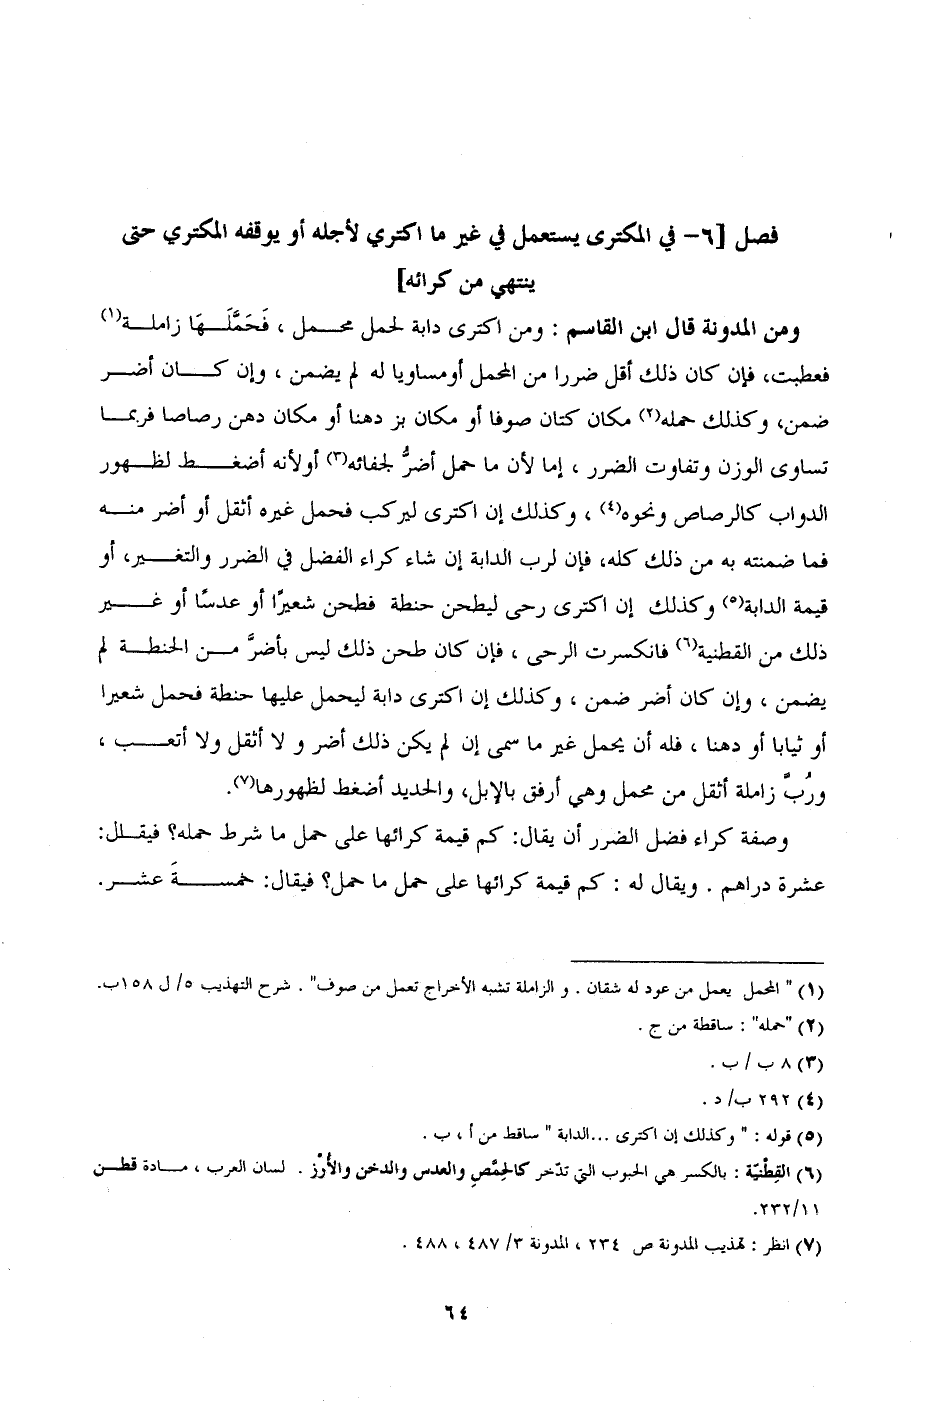 فصل [٦- في المكترى يستعمل في غير ما اكتري لأجله أو يوقفه المكتري حتى
ينتهي من كرائه]
ومن المدونة قال ابن القاسم : ومن اكترى دابة لحمل محمل ، فَحَمَّلَهَا زاملة(١)
فعطبت، فإن كان ذلك أقل ضررا من المحمل أومساويا له لم يضمن ، وإن كان أضر
ضمن، وكذلك حمله(٢) مكان كتان صوفا أو مكان بز دهنا أو مكان دهن رصاصا فربما
تساوى الوزن وتفاوت الضرر ، إما لأن ما حمل أضرُّ لجفائه(٣) أولأنه أضغط لظهور
الدواب كالرصاص ونحوه(٤) ، وكذلك إن اكترى ليركب فحمل غيره أثقل أو أضر منه
فما ضمنته به من ذلك كله، فإن لرب الدابة إن شاء كراء الفضل في الضرر والتغير، أو
قيمة الدابة(٥) وكذلك إن اكترى رحى ليطحن حنطة فطحن شعيرًا أو عدسًا أو غير
ذلك من القطنية(٦) فانكسرت الرحى ، فإن كان طحن ذلك ليس بأضرَّ من الحنطة لم
يضمن ، وإن كان أضر ضمن ، وكذلك إن اكترى دابة ليحمل عليها حنطة فحمل شعيرا
أو ثيابا أو دهنا ، فله أن يحمل غير ما سمى إن لم يكن ذلك أضر و لا أثقل ولا أتعب ،
ورُبَّ زاملة أثقل من محمل وهي أرفق بالإبل، والحديد أضغط لظهورها(٧).
وصفة كراء فضل الضرر أن يقال: كم قيمة كرائها على حمل ما شرط حمله؟ فيقلل:
عشرة دراهم . ويقال له : كم قيمة كرائها على حمل ما حمل؟ فيقال: خمسةَ عشر.
(١) " المحمل يعمل من عود له شقان . و الزاملة تشبه الأخراج تعمل من صوف" . شرح التهذيب ٥/ ل ١٥٨ب.
(٢) "حمله" : ساقطة من ج .
(٣) ٨ ب / ب .
(٤) ٢٩٢ ب/ د .
(٥) قوله : " وكذلك إن اكترى ...الدابة " ساقط من أ ، ب .
(٦) القِطْنيّة : بالكسر هي الحبوب التي تدّخر كالحِمَّصِ والعدس والدخن والأُرْز . لسان العرب ، مادة قطن
٢٣٢/١١.
(٧) انظر : تهذيب المدونة ص ٢٣٤ ، المدونة ٣/ ٤٨٧ ، ٤٨٨ .
٦٤